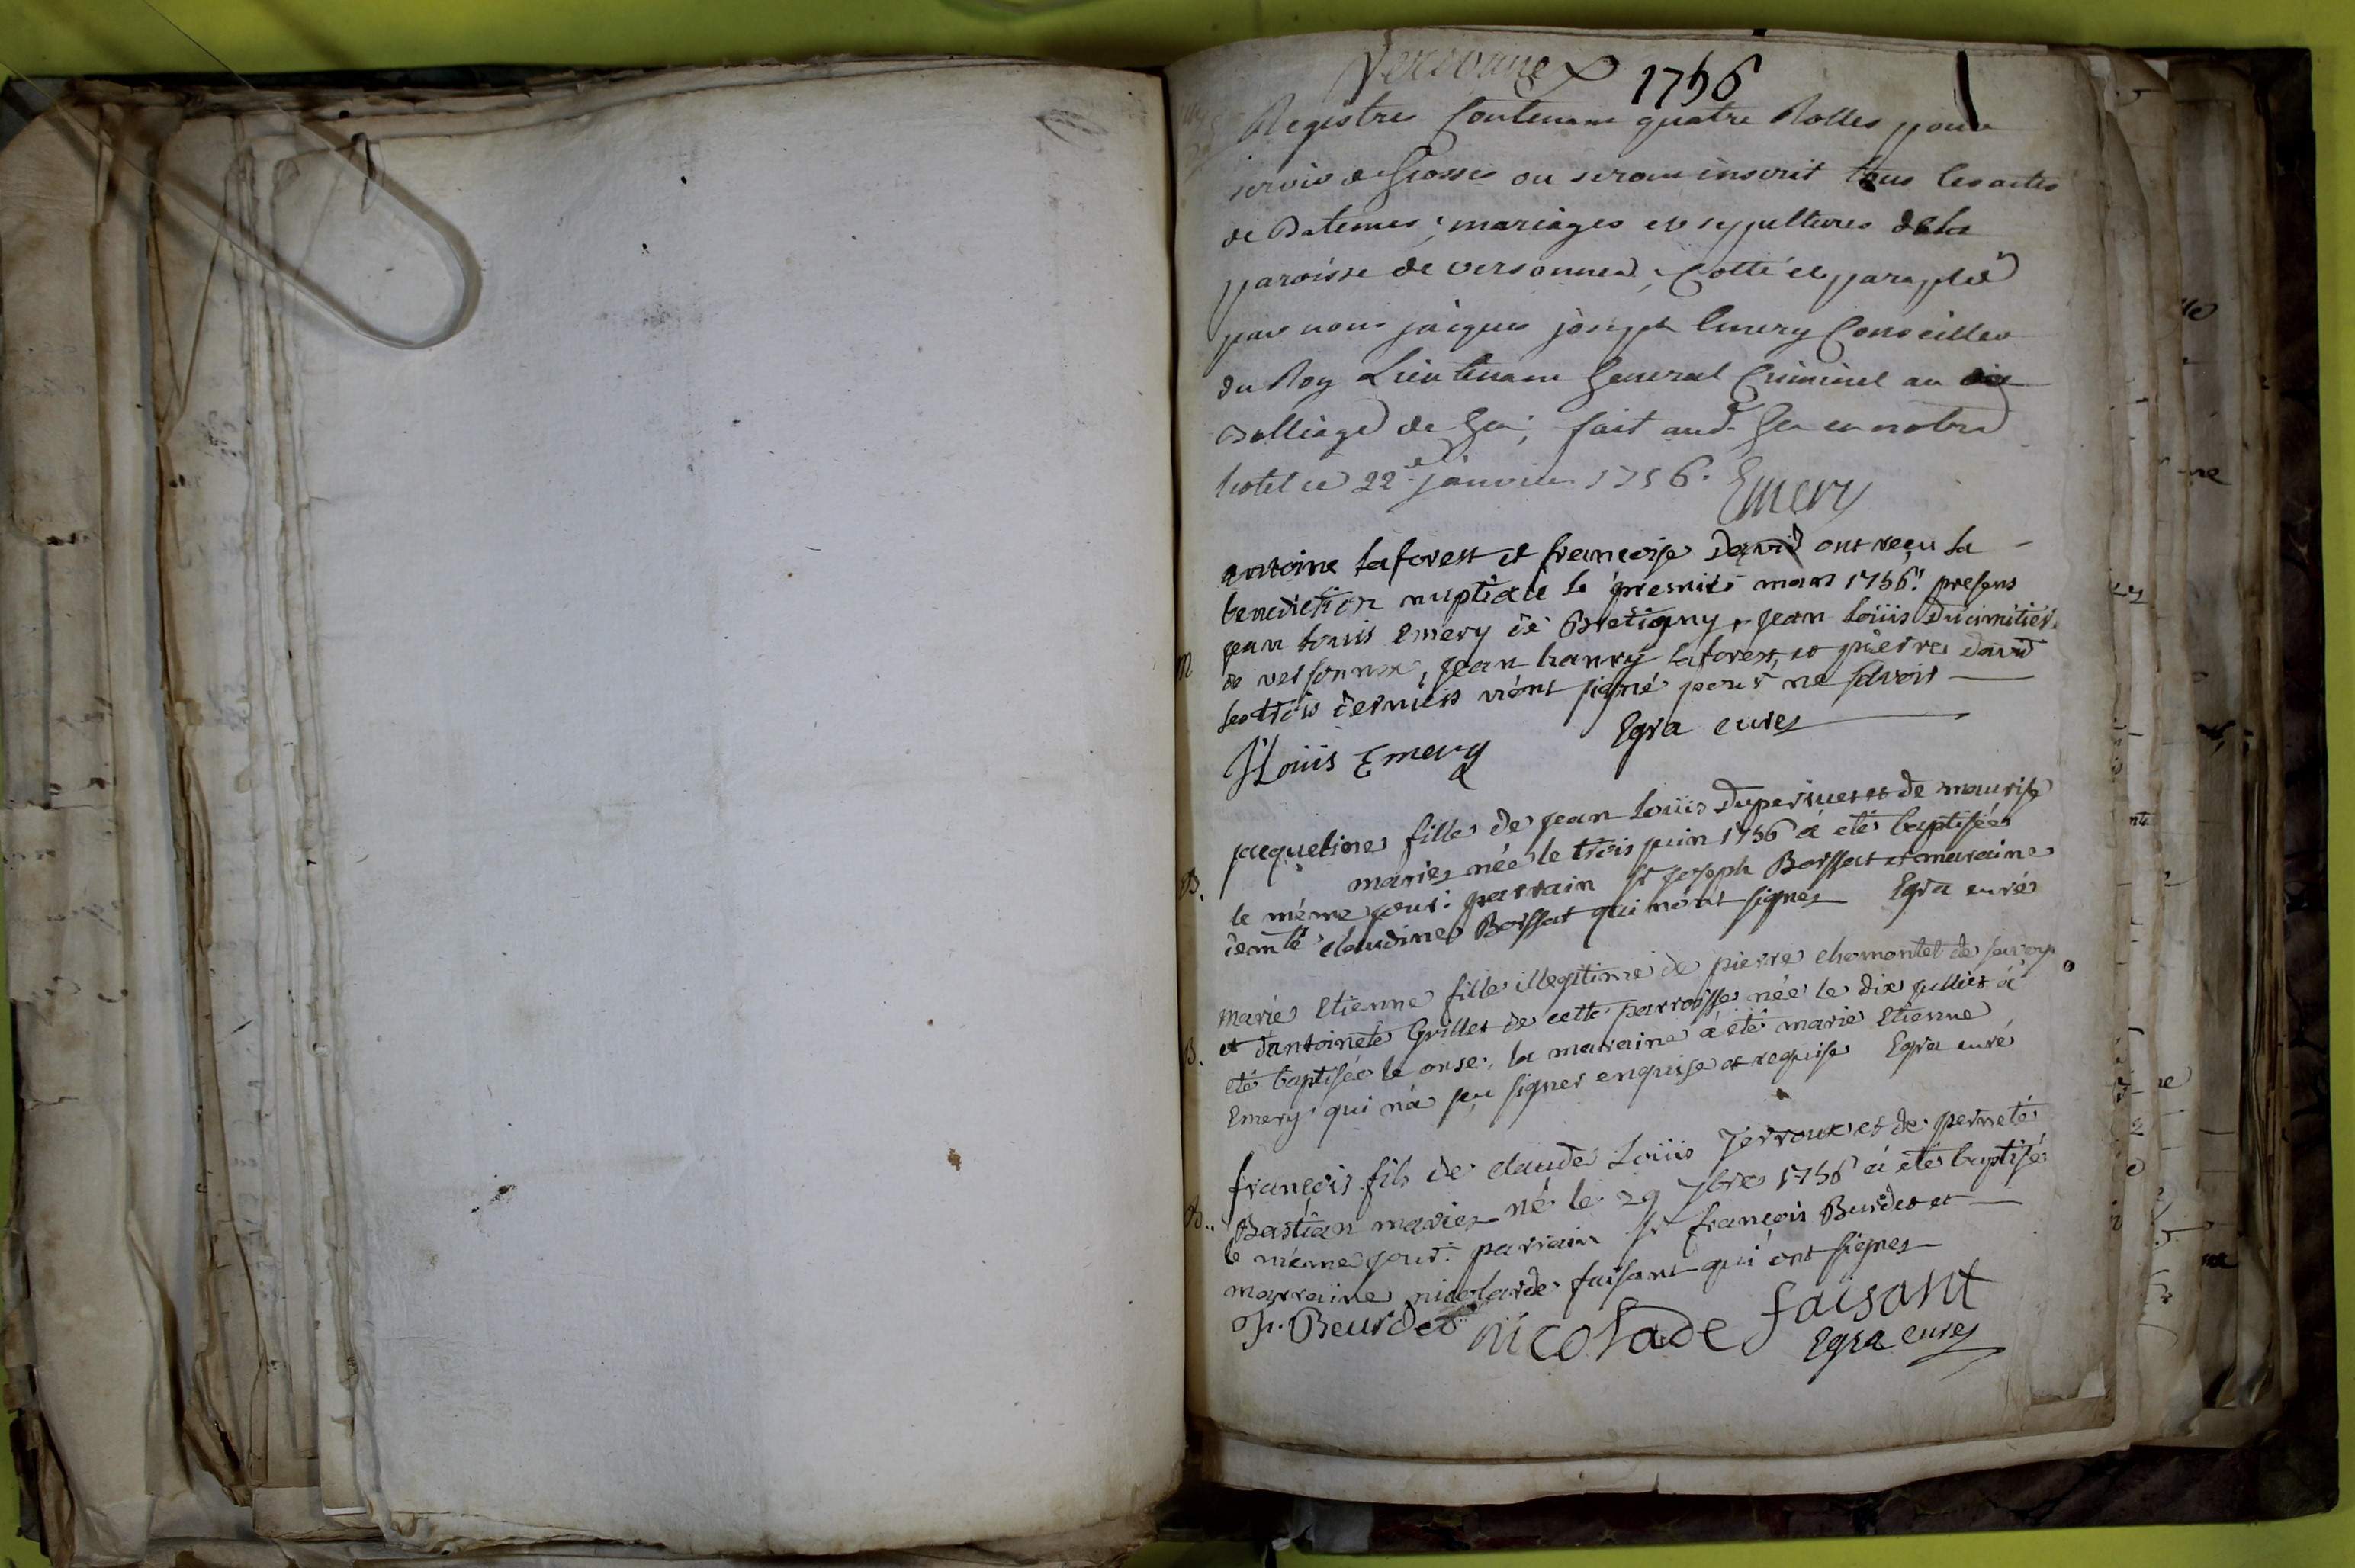 Versonnex 1756
1
Registre Contenant quatre Rolles pour
servir de Grosse ou seront inscrit tous les actes
de Batemes, mariages et sepultures de la
paroisse de versonnex, Cotté et paraphé
par nous jacques joseph Emery Conseiller
du Roy Lieutenant General Criminel au
Balliage de Gex, fait aud. Gex en notre
hotel ce 22e janvier 1756. Emery
antoine laforest et francoise David ont reçu la
benediction nuptiale le premier mars 1756. presens
jean Louis Emery de Bretigny, jean Loüis Ducimitier
M
de versonnex, jean hanry laforest, et pierre David
les trois derniers n'ont signé pour ne savoir
Egra curé
J Loüis Emery
jacqueline fille de jean Loüis Dupersuet et de maurise
mariez née le trois juin 1756 a eté baptisée
B.
le même jour: parrain Sr joseph Boissat et maraine
demle claudine Boissat qui n'ont signez Egra curé
marie Etienne fille illegitime de pierre chomontet de savoye
et d'antoinete Grillet de cette parroisse née le dix juillet a
B.
eté baptisée le onse, la maraine a eté marie Etienne
Emery qui n'a sçu signer enquise et requise Egra curé
françois fils de claude Loüis Jerroux et de perneté
Bastian mariez né le 29 7bre 1756 a eté baptisé
B.
le même jour: parrain Sr françois Burdet et
marraine nicolarde faisant qui ont signez
fr. Beurdet nicolade faisant
Egra curé